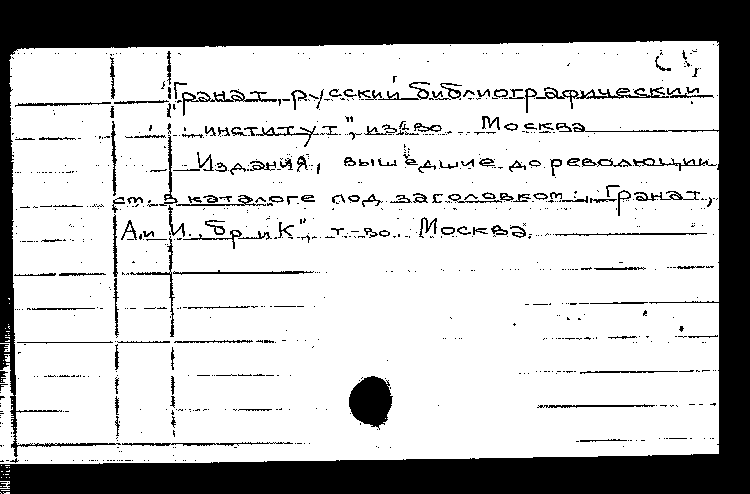 "Гранат, русский библиографический
институт", изд-во Москва
Издания, вышедшие до революции,
см. в каталоге под заголовком: "Гранат,
А. и И., бр и К", т-во. Москва.